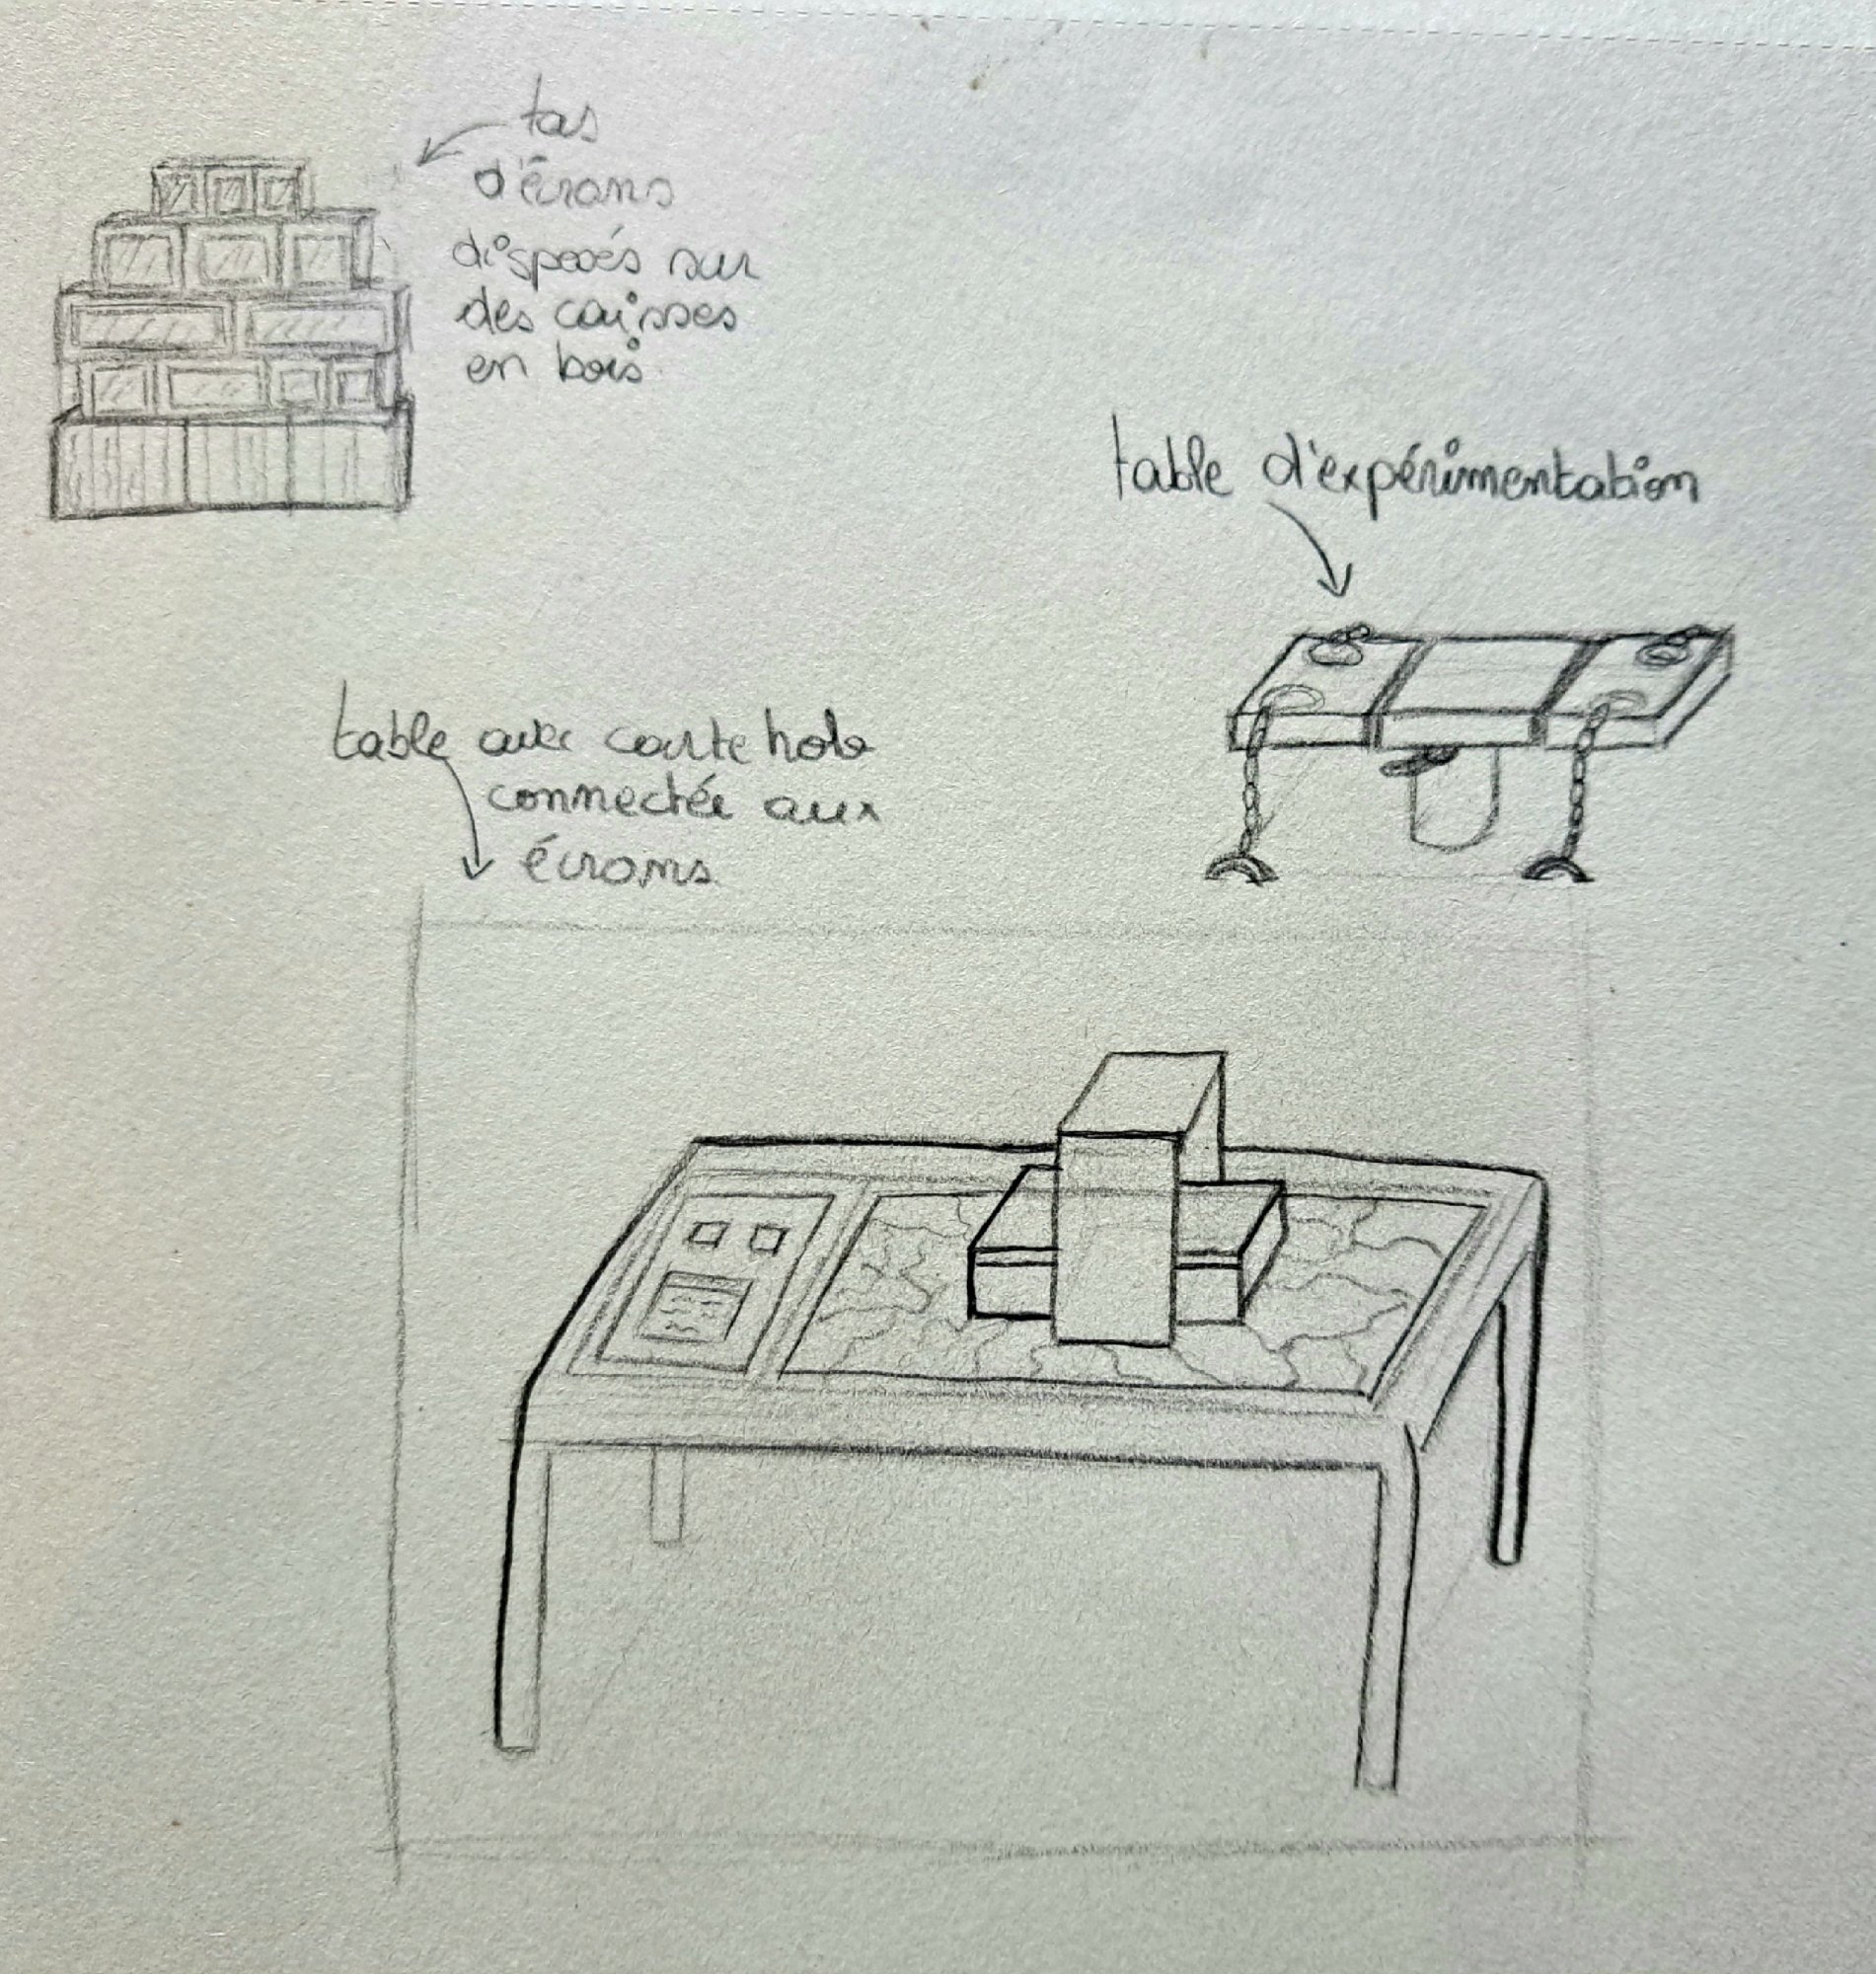 tas
d'écrans
disposés sur
des caisses
en bois
table d'expérimentation
table avec carte holo
connectée aux
écrans